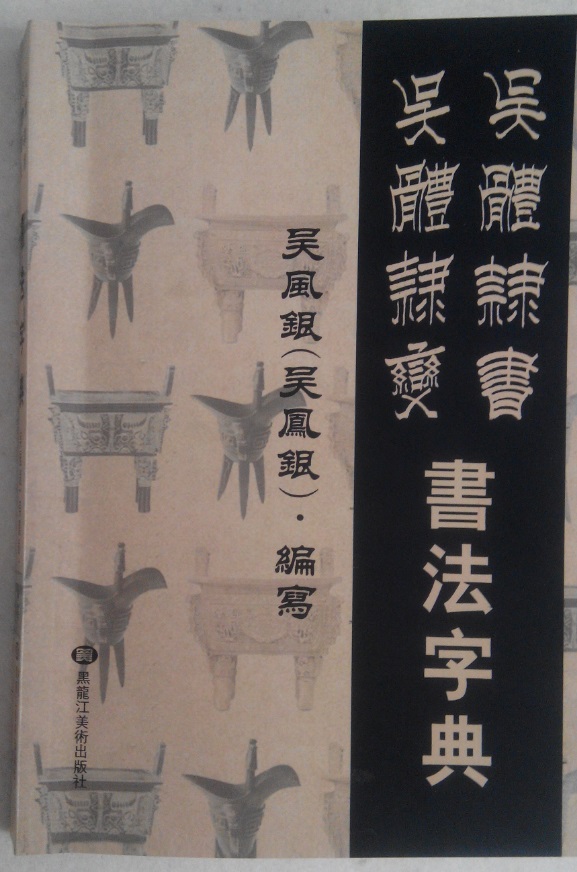 吴體隷書
吴體隷變
書法字典
吴風銀(吴鳳銀)·編寫
黑龍江美術出版社